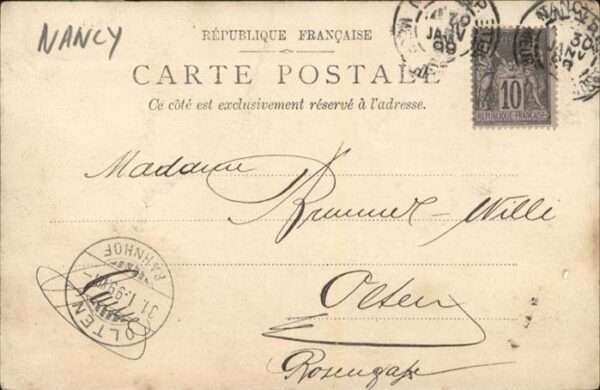 NANCY
RÉPUBLIQUE FRANÇAISE
CARTE POSTALE
Ce côté est exclusivement réservé à l'adresse.
NANCY
30
JANV
99
NANCY
30
JANV
99
10
REPUBLIQUE FRANÇAISE
Madame
Brunner-Willi
Olten
Rosengasse
OLTEN
BAHNHOF
31.I.99